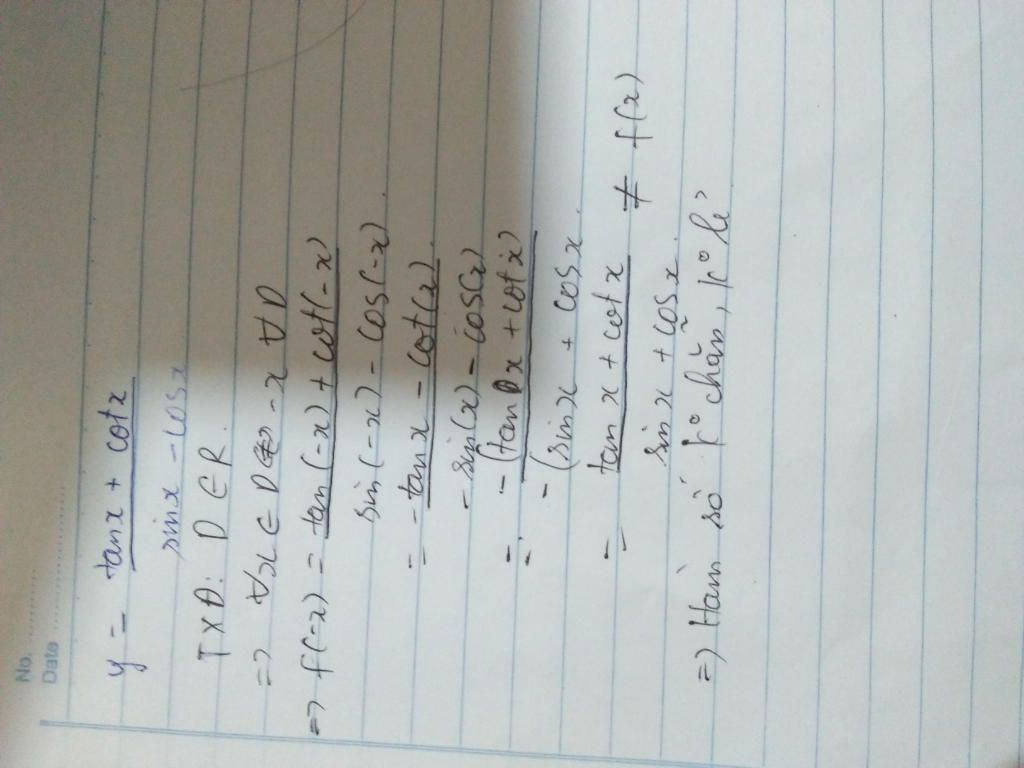 No.
Date
y = tanx + cotx
sinx - cosx
TXĐ: D ∈ R.
=> ∀x ∈ D -x ∀ D
=> f(-x) = tan(-x) + cot(-x)
sin(-x) - cos(-x).
= -tanx - cot(x)
- sin(x) - cos(x)
= - (tan x + cotx)
- (sinx + cosx.
= tanx + cotx ≠ f(x)
sinx + cosx.
=> Hàm số k° chẵn, k° lẻ